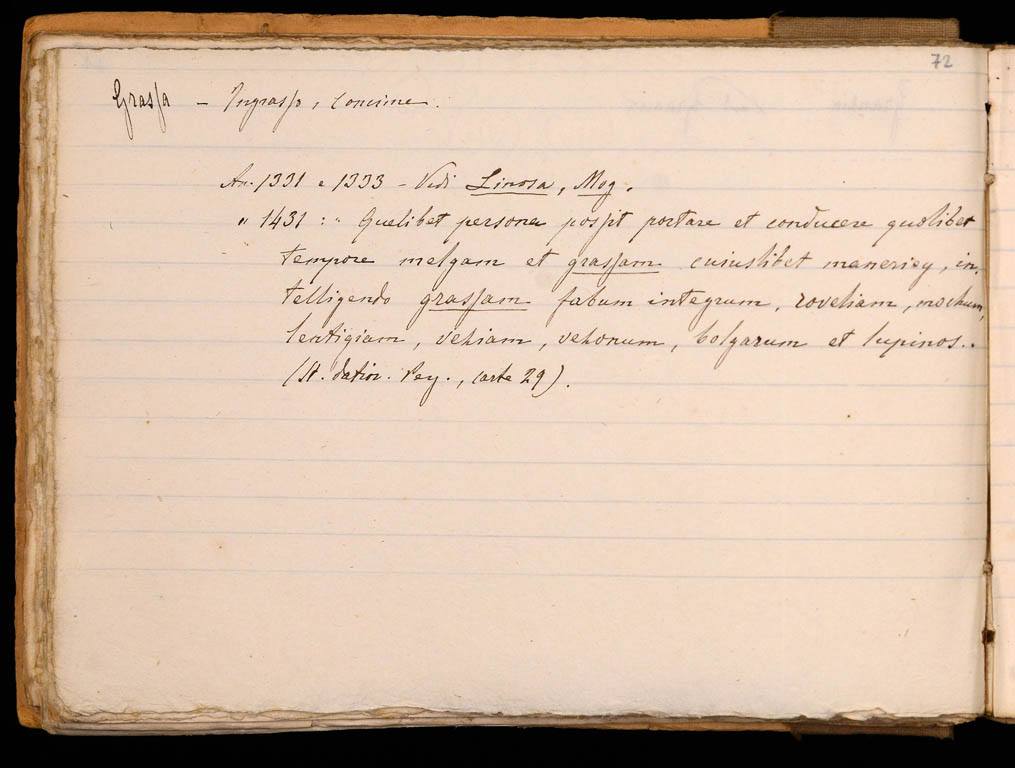 72
Grassa – Ingrasso, concime.
An. 1331 e 1333 – Vedi Linosa, Mog.
" 1431 : " Quelibet persona possit portare et conducere quolibet
tempore melgam et grassam cuiuslibet maneriey, in-
telligendo grassam fabum integrum, roveliam, mochum,
lentigiam, vehiam, vehonum, bolgarum et lupinos..
(St. datior. Rey., carte 29).